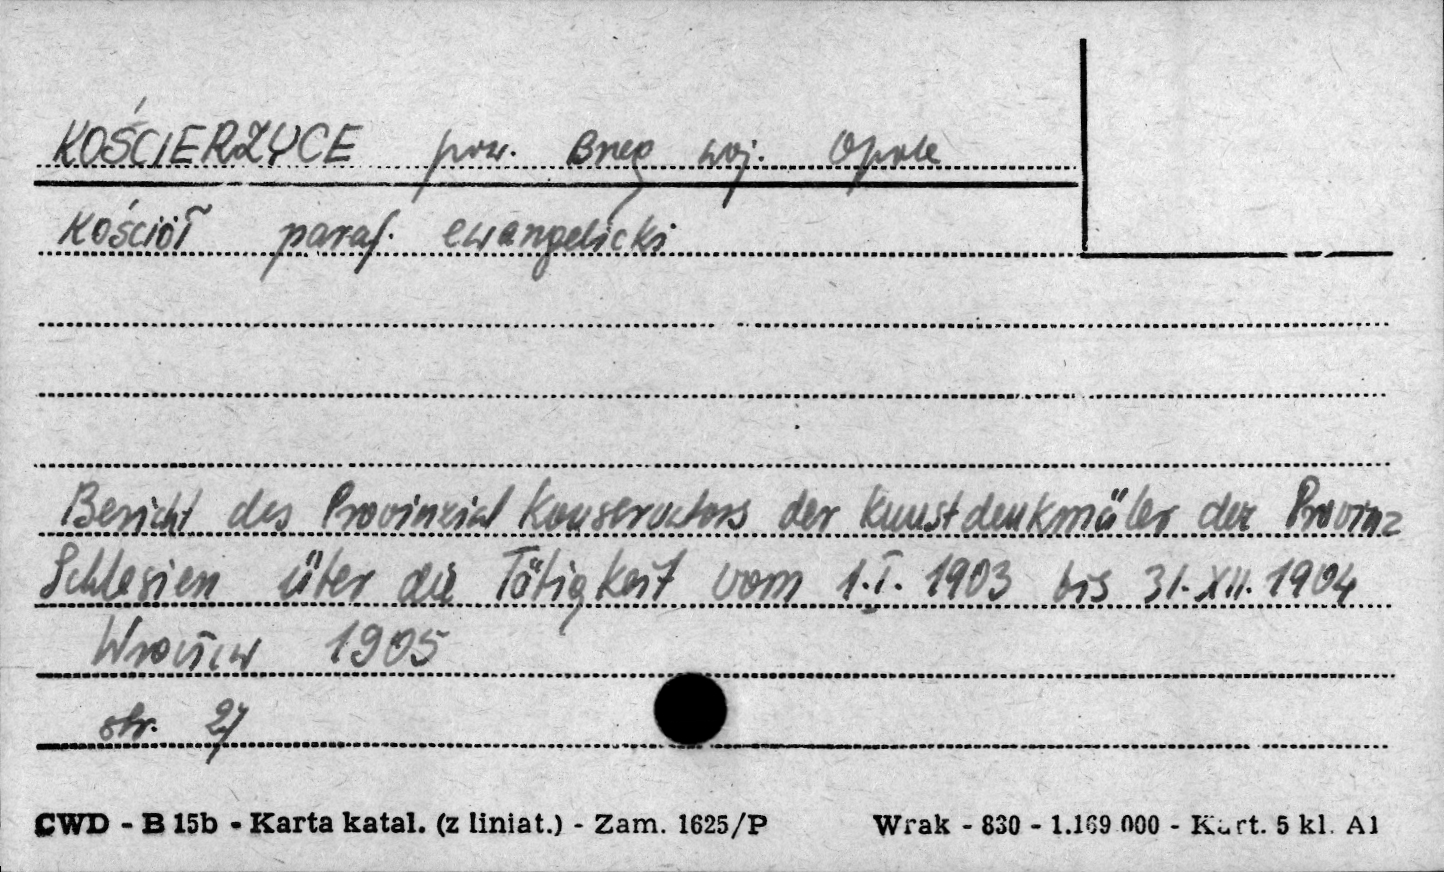 KOŚCIERZYCE pow. Brzeg woj. Opole
Kościół paraf. ewangelicki
Bericht des Provinzial Konservators der Kunstdenkmäler der Provinz
Schlesien über die Tätigkeit vom 1.I. 1903 bis 31.XII.1904
Wrocław 1905
str. 27
CWD - B 15b - Karta katal. (z liniat.) - Zam. 1625/P Wrak - 830 - 1.169 000 - Kart. 5 kl. A1